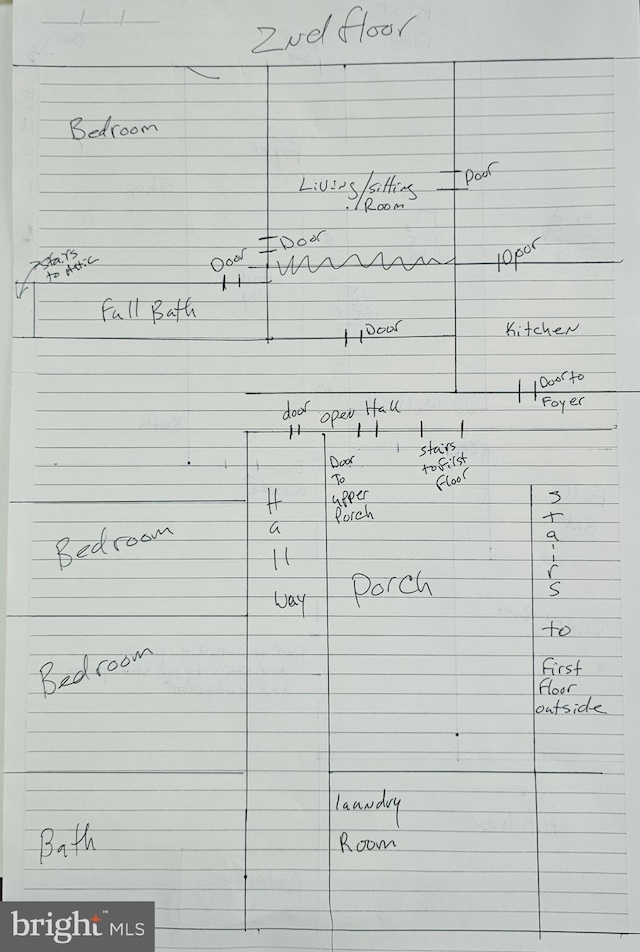 2nd floor
Bedroom
Living/sitting
Room
Door
Door
Door
Door
stairs
to Attic
Full Bath
Door
Kitchen
Door to
Foyer
door
open Hall
Door
To
upper
Porch
stairs
to first
floor
Hall
way
Bedroom
Porch
Stairs
to
first
floor
outside
Bedroom
laundry
Room
Bath
bright MLS